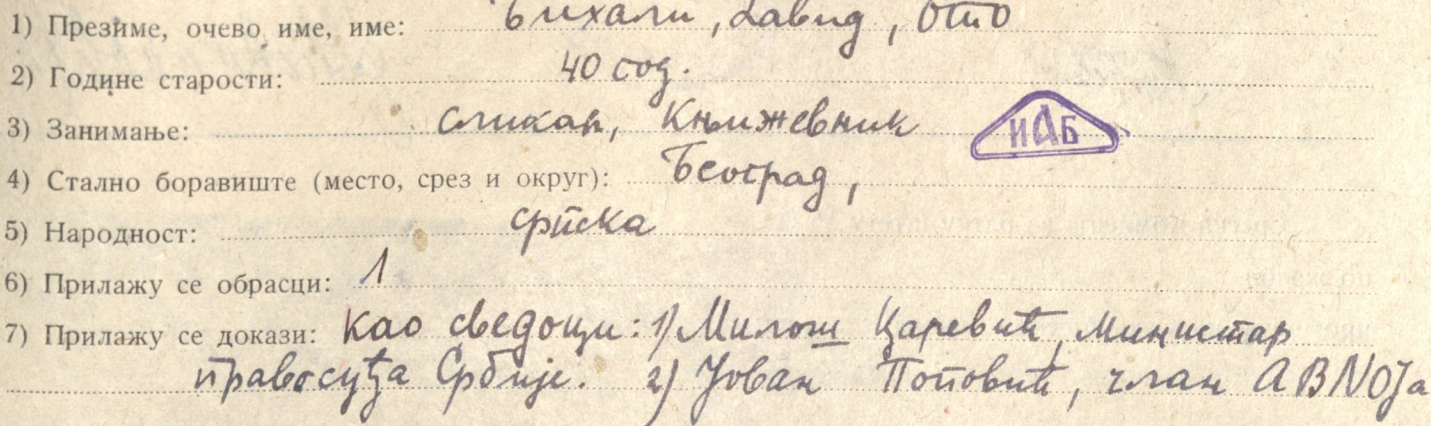 1) Презиме, очево име, име: Бихали, Давид, Ото
2) Године старости: 40 год.
3) Занимање: сликар, Књижевник
ИАБ
4) Стално боравиште (место, срез и округ): Београд,
5) Народност: српска
6) Прилажу се обрасци: 1
7) Прилажу се докази: Као сведоци: 1) Милош Царевић, Министар
правосуђа Србије. 2) Јован Поповић, члан АВNOJа